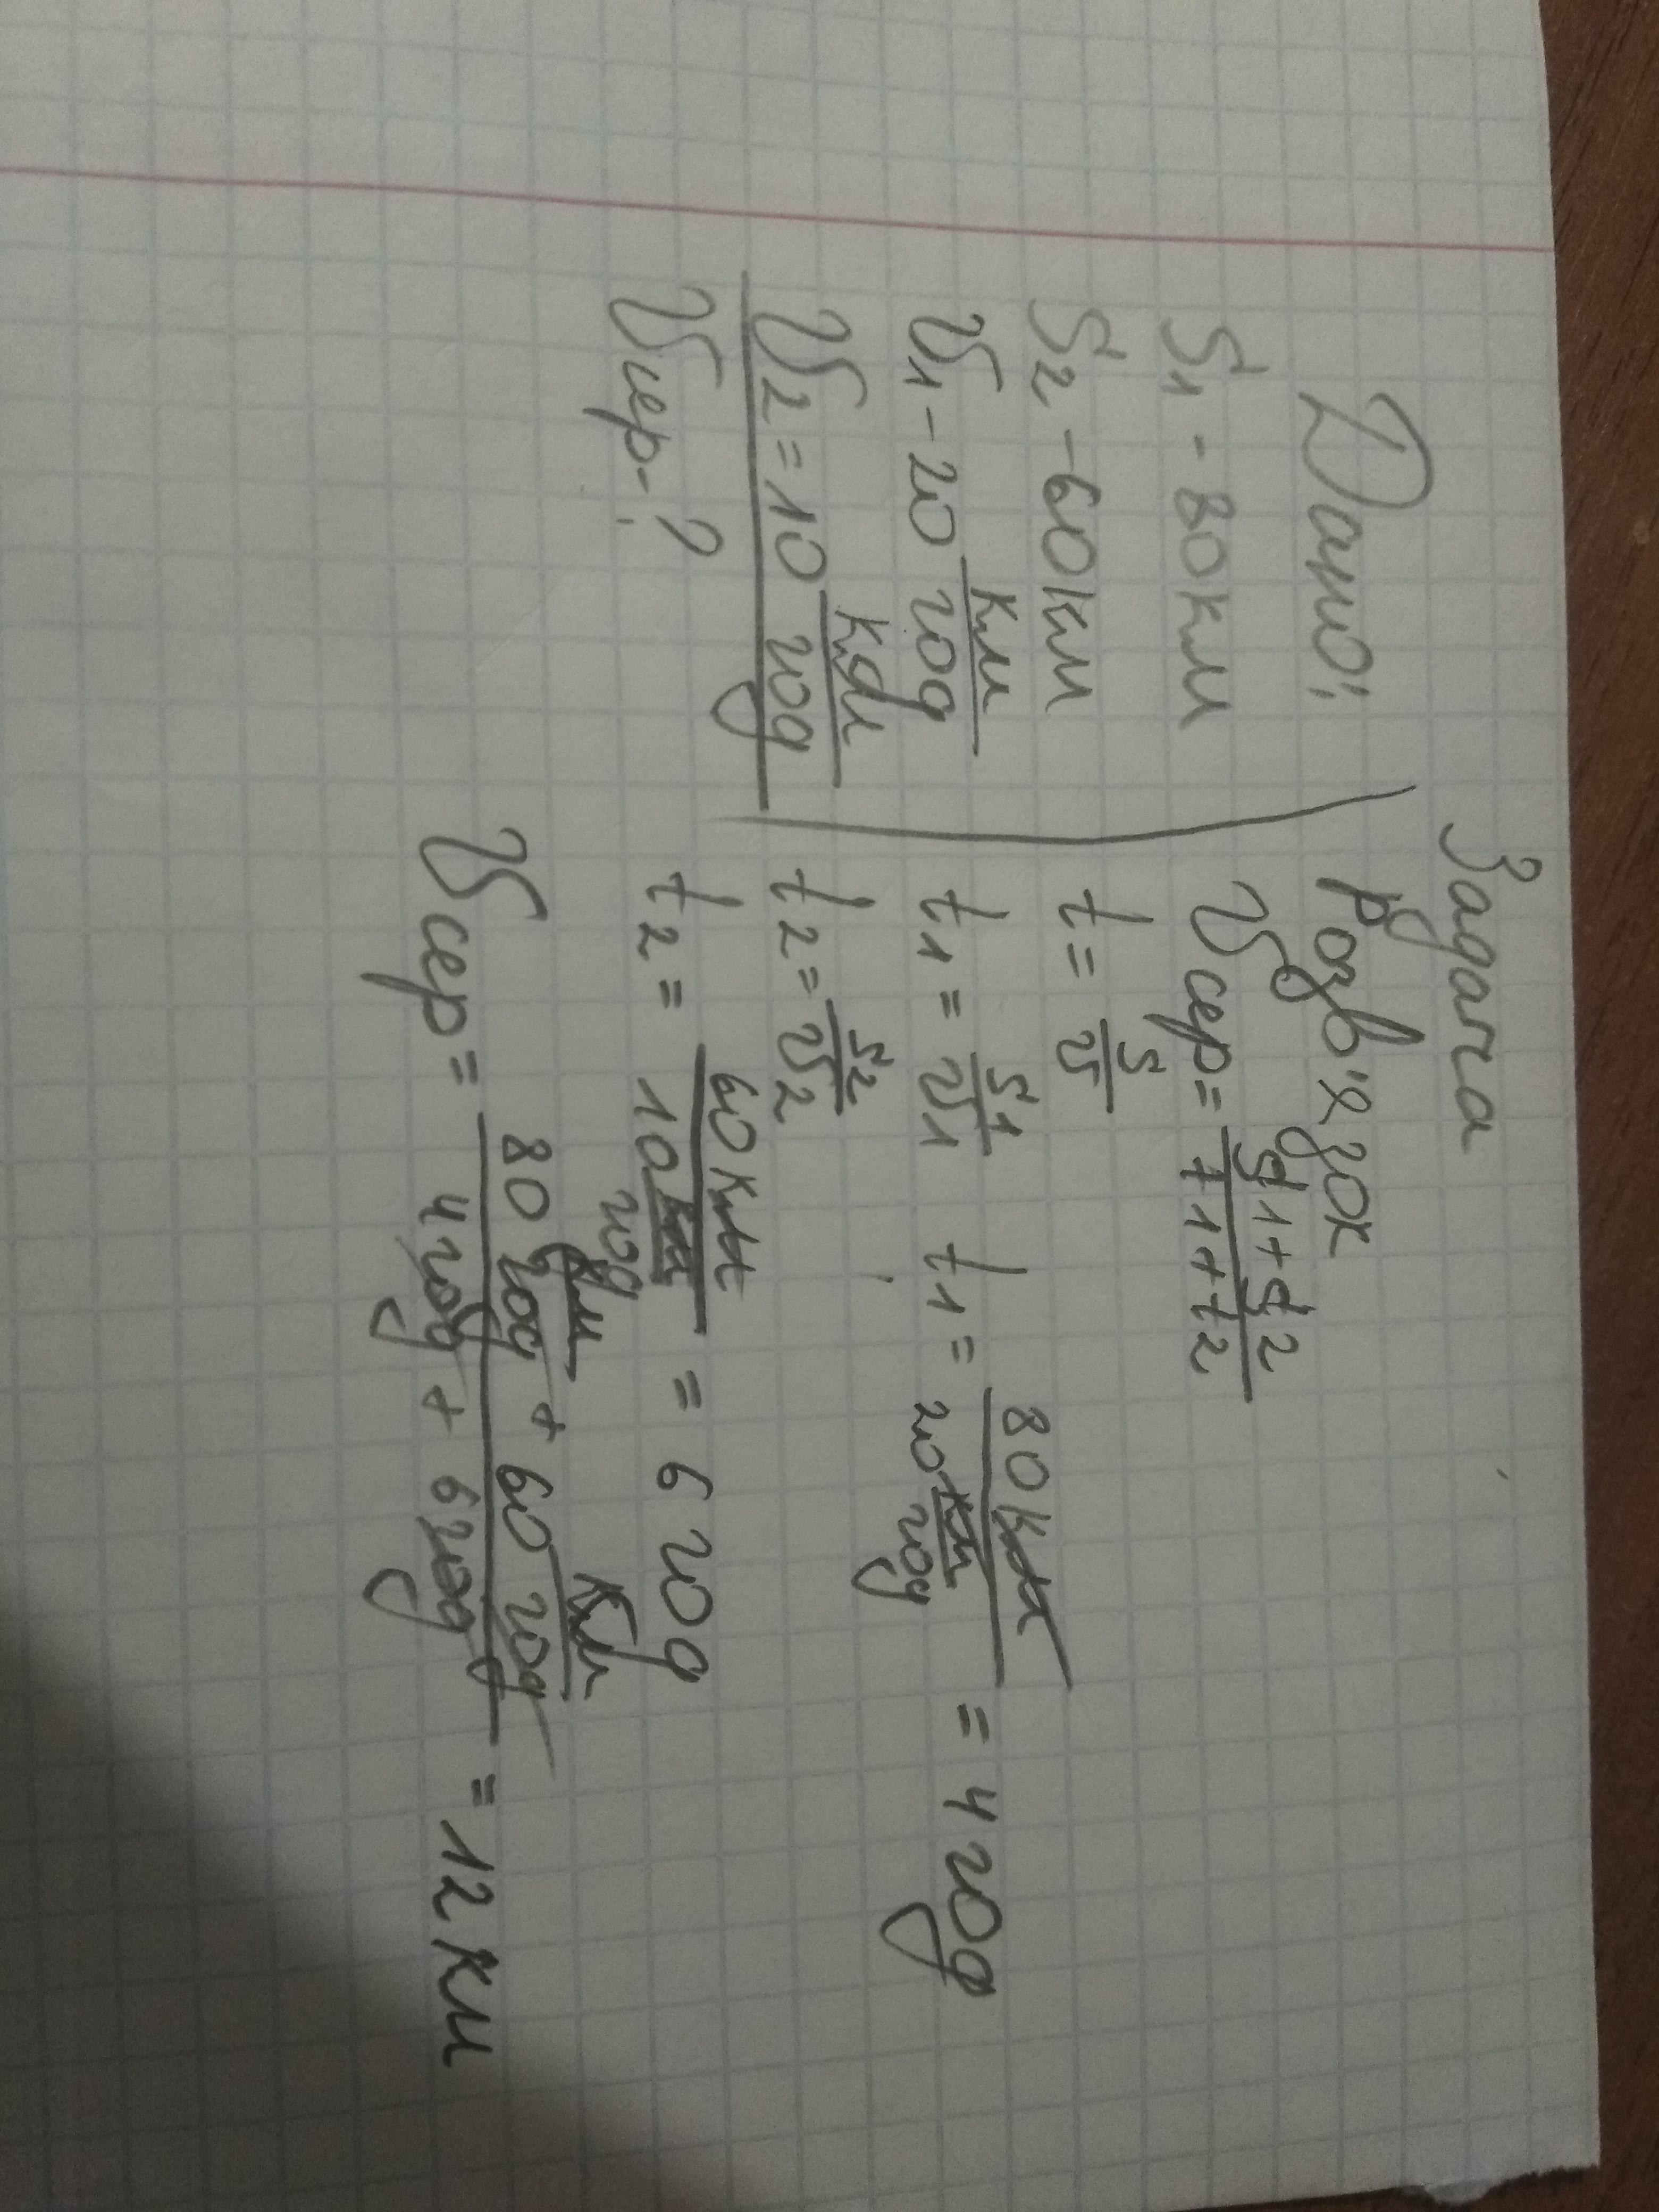 Задача
Дано:
S1 - 80км
S2 - 60км
V1 - 20 км/год
V2 = 10 км/год
Vсер - ?
Розв'язок
Vсер = S1+S2/t1+t2
t = S/V
t1 = S1/V1 t1 = 80км/20 км/год = 4 год
t2 = S2/V2
t2 = 60км/10 км/год = 6 год
Vсер = 80 км/год + 60 км/год / 4 год + 6 год = 12 км